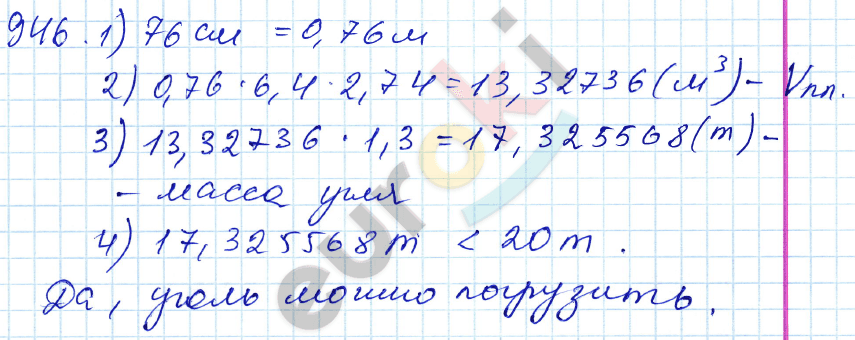 946. 1) 76 см = 0,76 м
2) 0,76 · 6,4 · 2,74 = 13,32736 (м³) – Vпп.
3) 13,32736 · 1,3 = 17,325568 (т) –
– масса угля
4) 17,325568 т < 20 т.
Да, уголь можно погрузить.
euroki